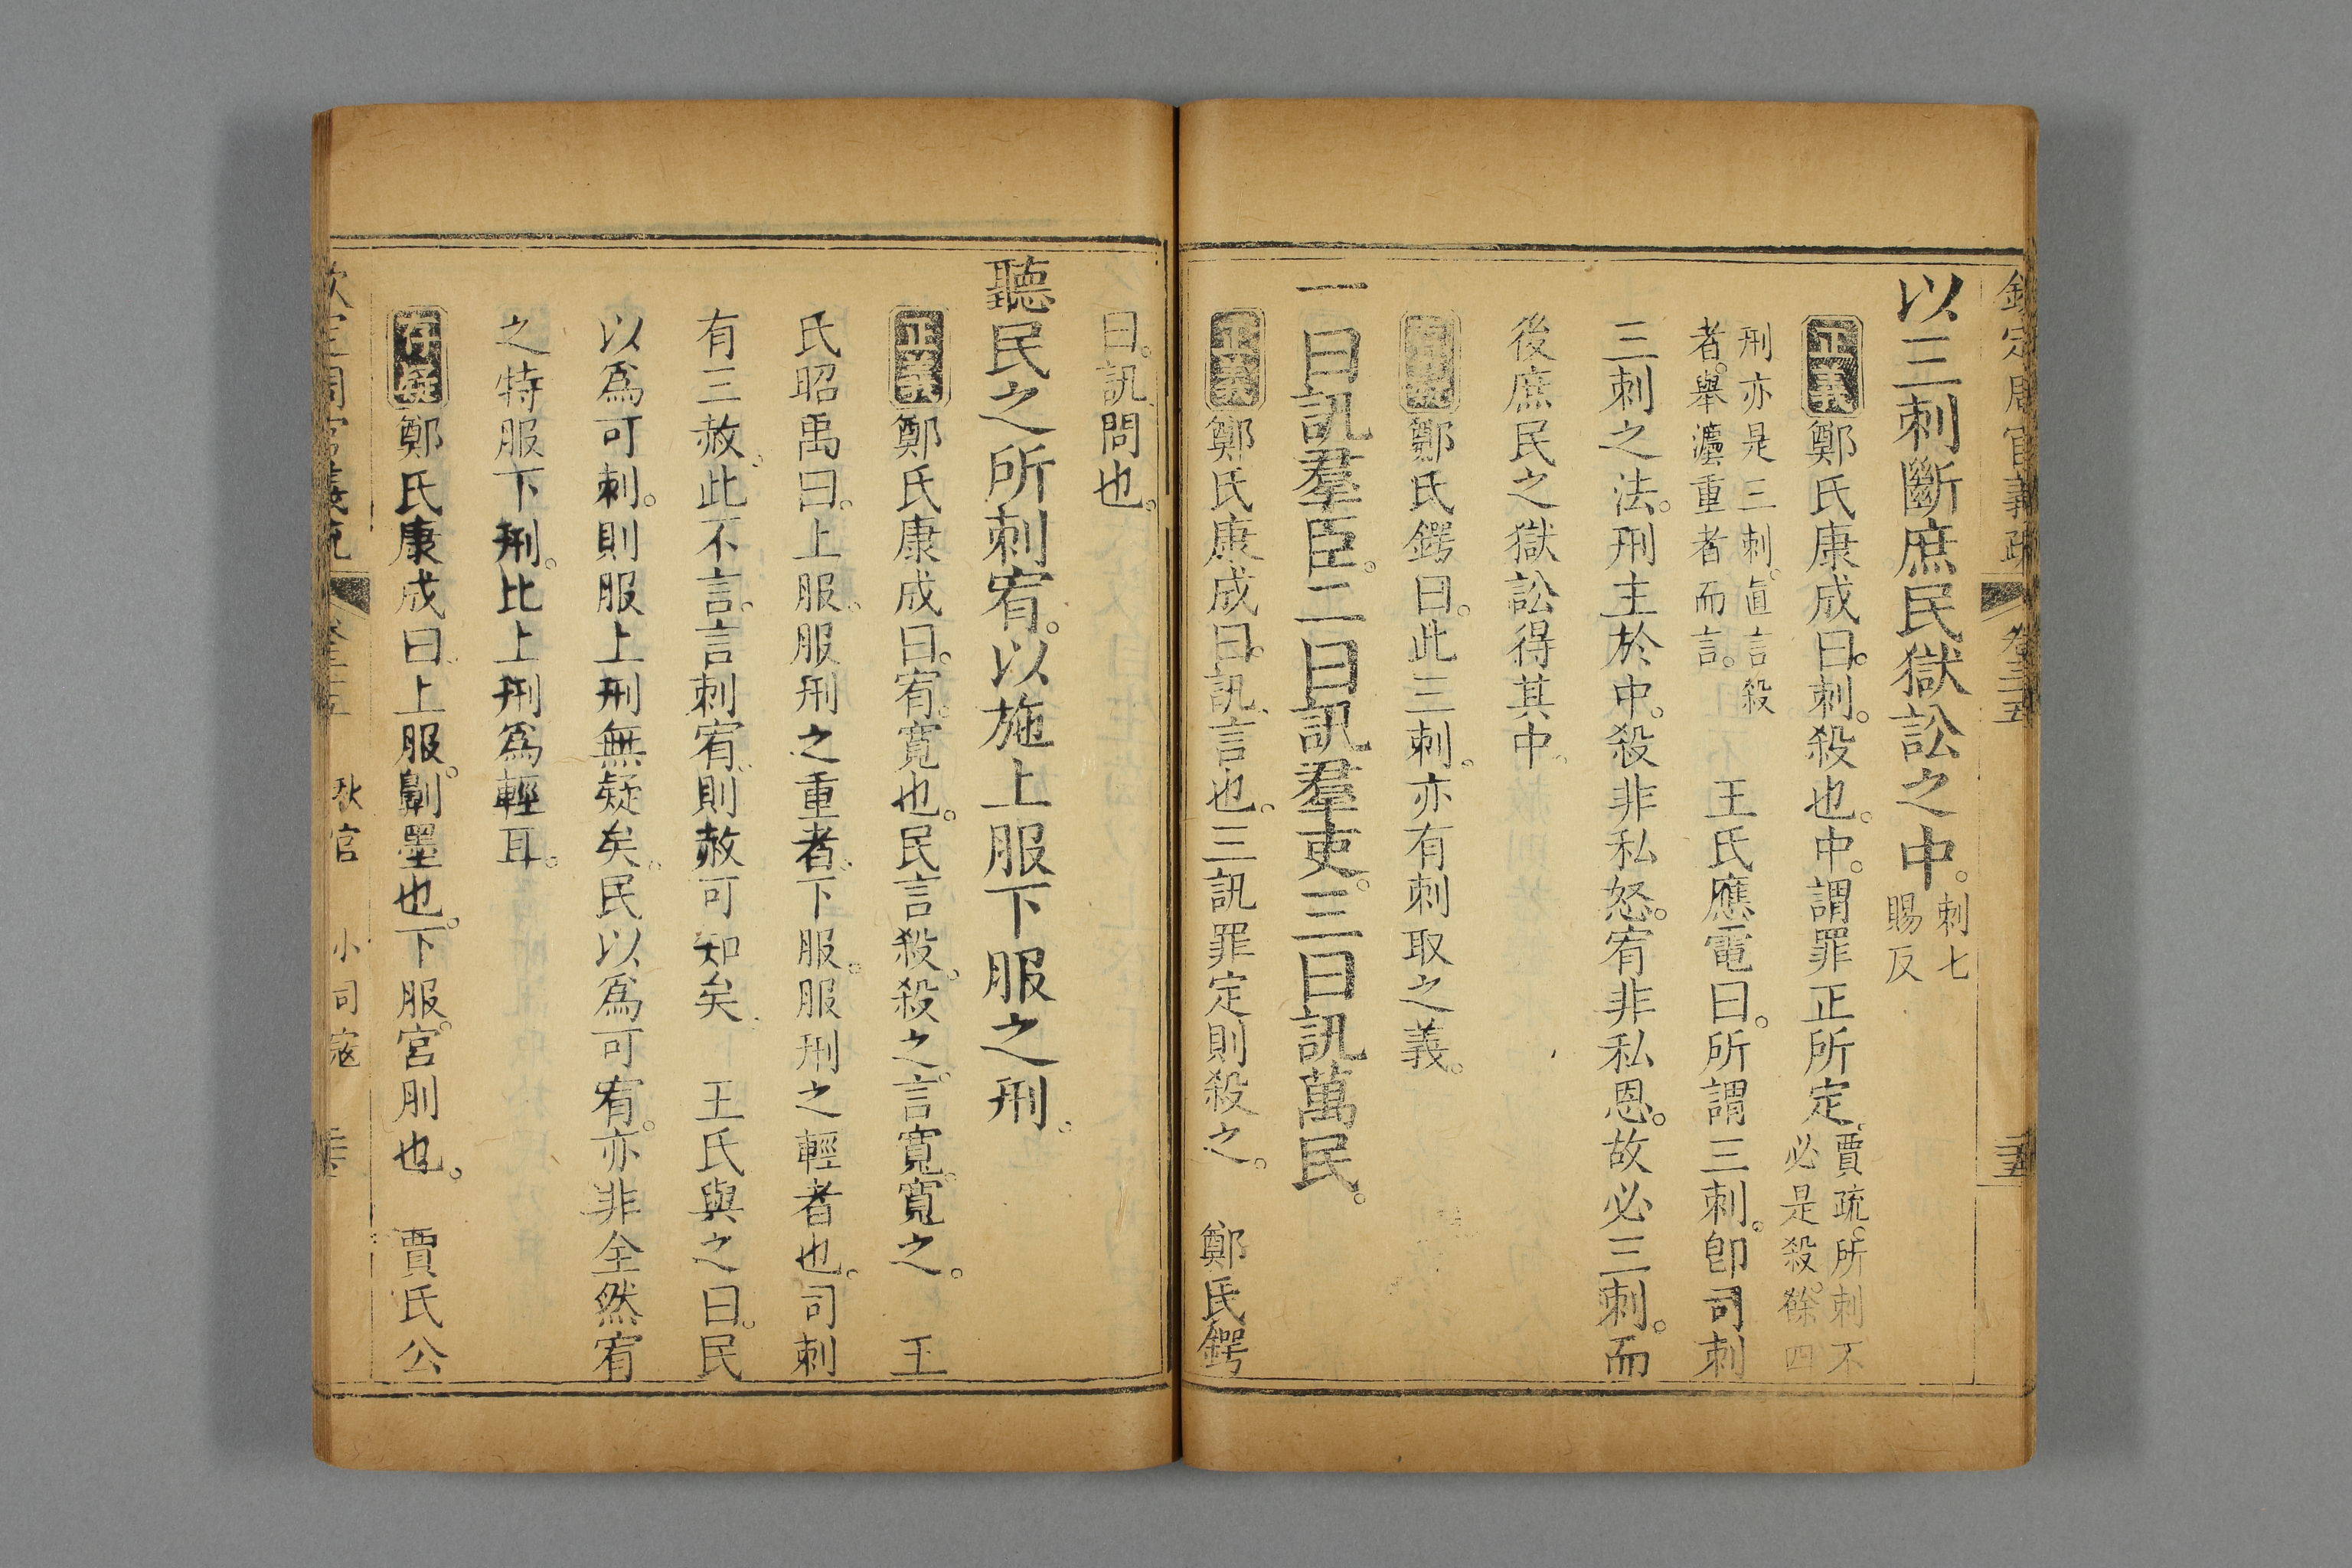 欽定周官義疏 卷三十五
以三刺斷庶民獄訟之中。刺七
賜反
正義鄭氏康成曰。刺。殺也。中。謂罪正所定。賈疏。所刺不
必是殺。餘四
刑亦是三刺。直言殺
者。舉灋重者而言。 王氏應電曰。所謂三刺。卽司刺
三刺之法。刑主於中。殺非私怒。宥非私恩。故必三刺。而
後庶民之獄訟得其中。
鄭氏鍔曰。此三刺。亦有刺取之義。
一曰訊羣臣。二曰訊羣吏。三曰訊萬民。
正義鄭氏康成曰。訊。言也。三訊罪定則殺之。 鄭氏鍔
曰。訊。問也。
聽民之所刺宥。以施上服下服之刑。
正義鄭氏康成曰。宥。寬也。民言殺。殺之。言寬。寬之。 王
氏昭禹曰。上服。服刑之重者。下服。服刑之輕者也。司刺
有三赦。此不言。言刺宥。則赦可知矣。 王氏與之曰。民
以爲可刺。則服上刑無疑矣。民以爲可宥。亦非全然宥
之。特服下刑。比上刑爲輕耳。
存疑鄭氏康成曰。上服。劓墨也。下服。宮刖也。 賈氏公
欽定周官義疏 秋官 小司寇